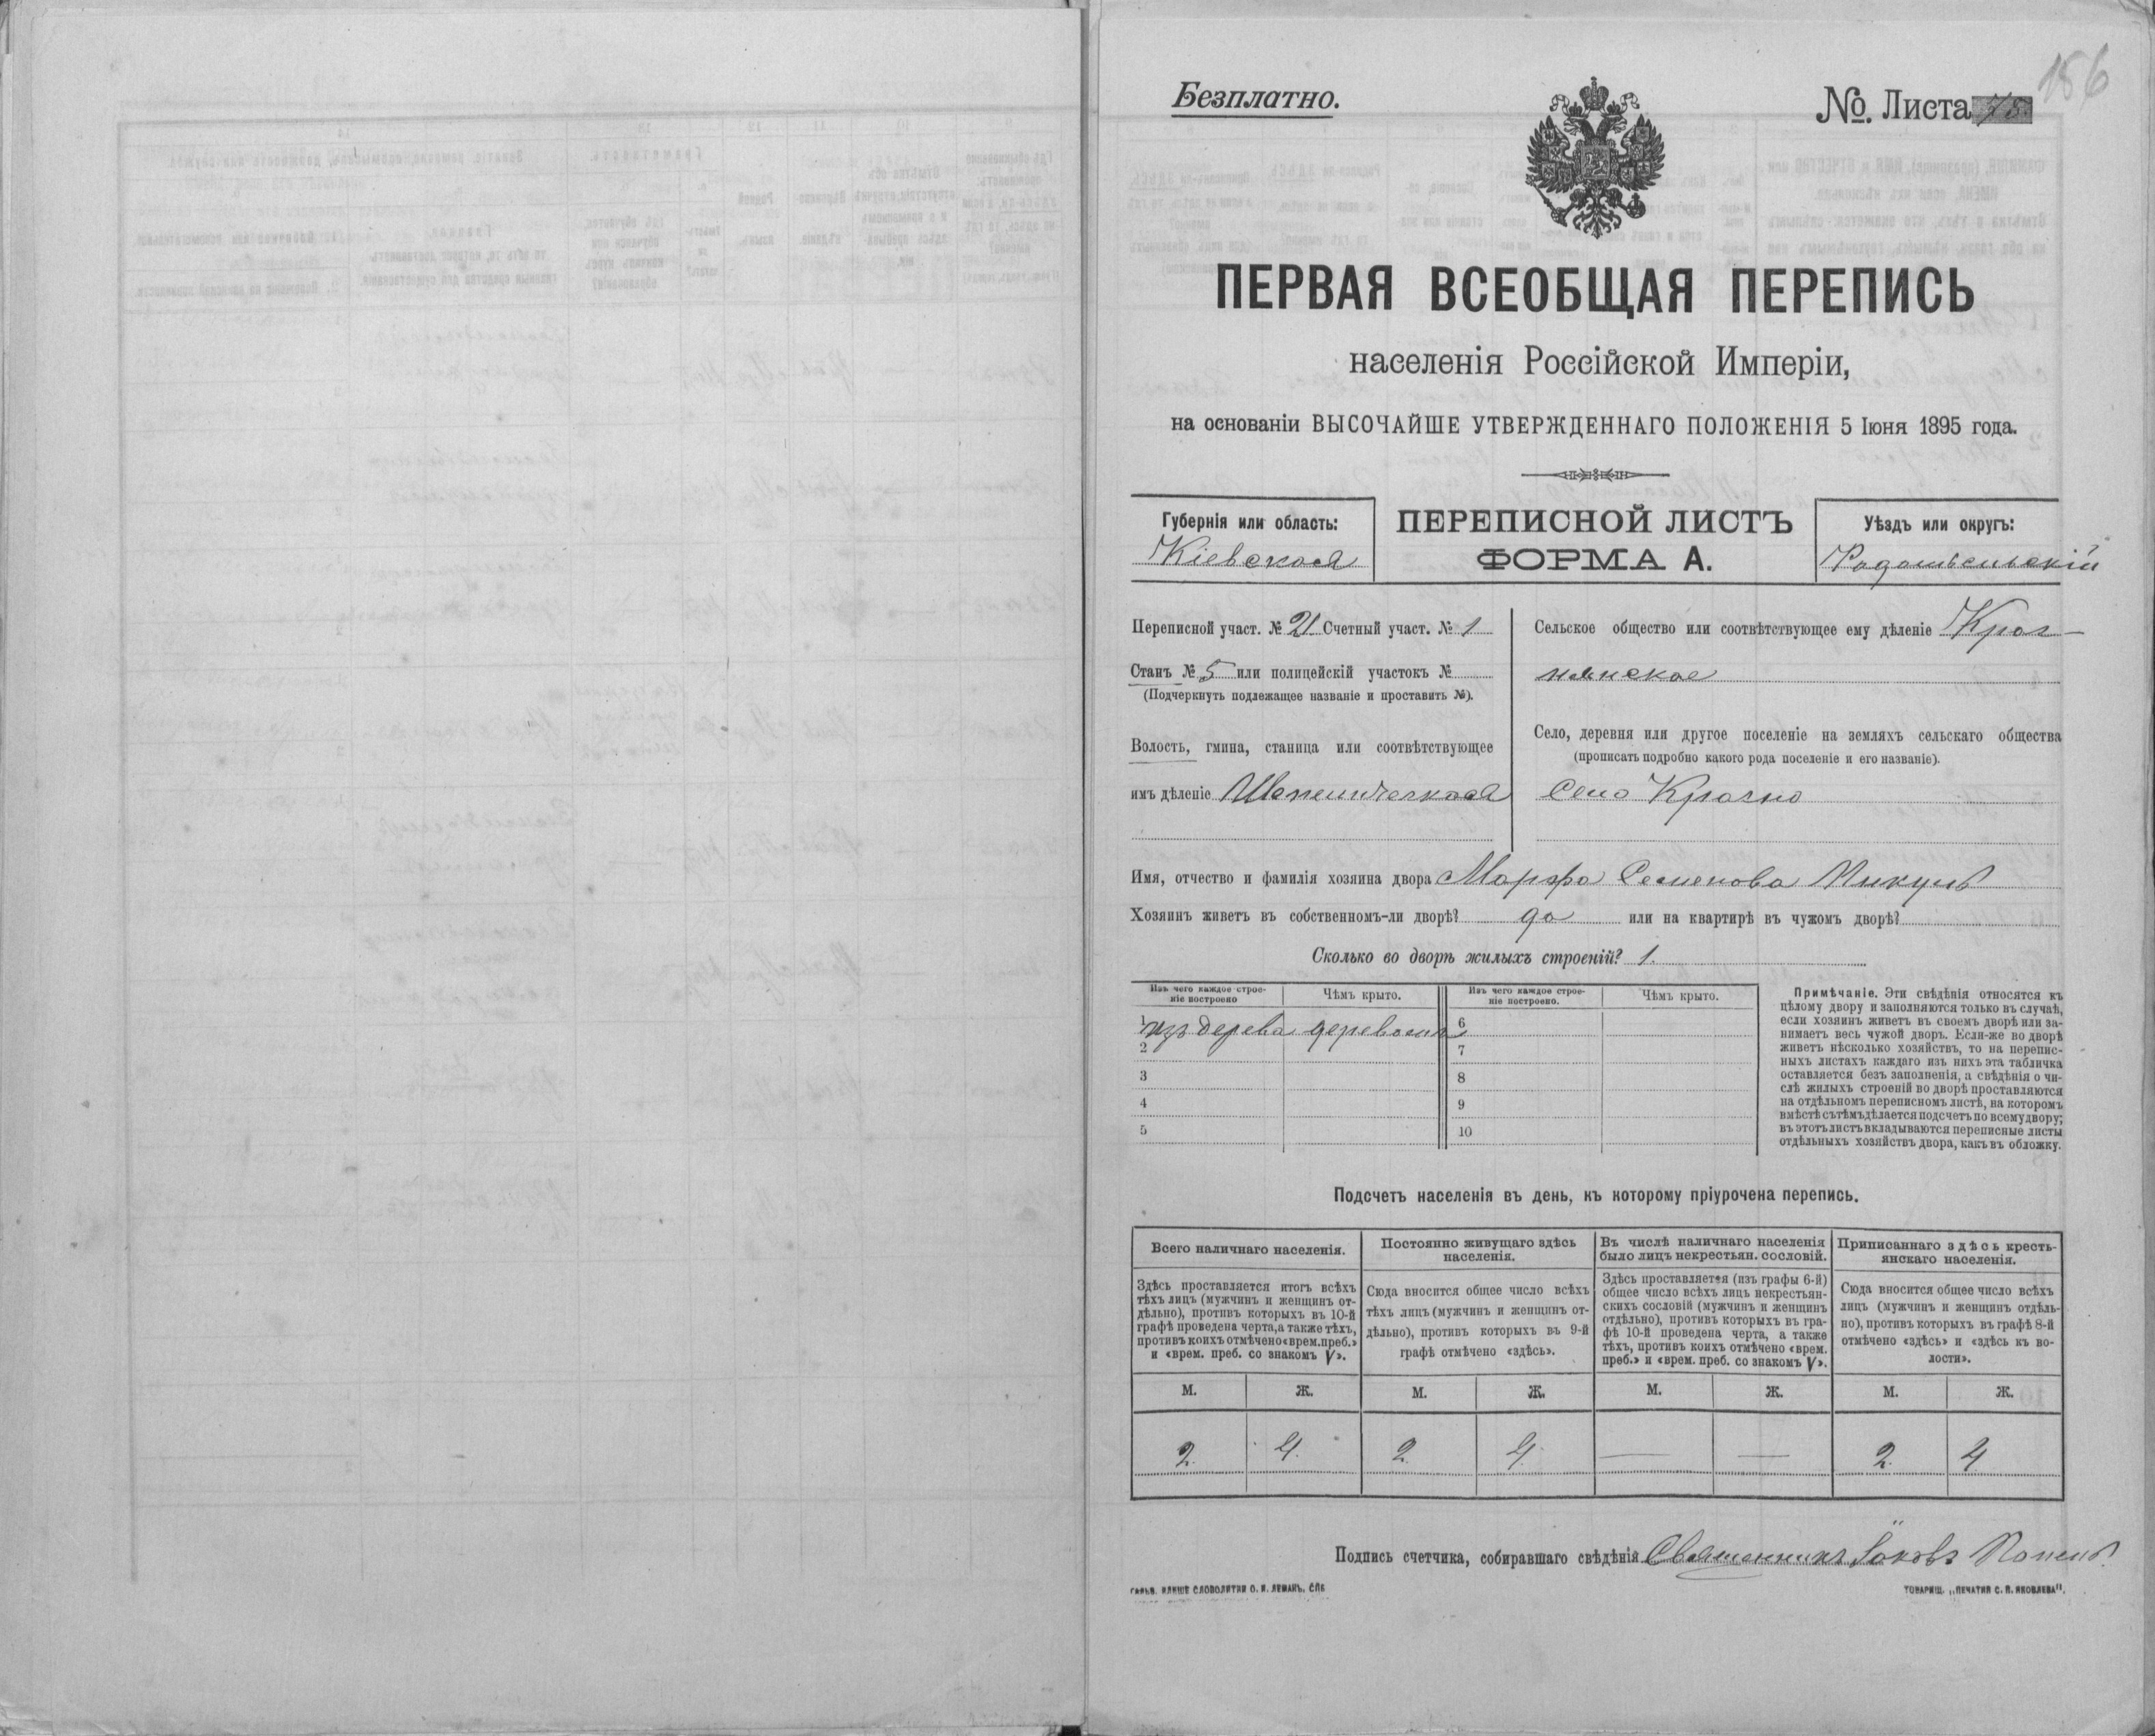 156
Безплатно.
№. Листа 78.
ПЕРВАЯ ВСЕОБЩАЯ ПЕРЕПИСЬ
населенія Россійской Имперіи,
на основаніи ВЫСОЧАЙШЕ УТВЕРЖДЕННАГО ПОЛОЖЕНІЯ 5 Іюня 1895 года.
Губернія или область:
Кіевская
ПЕРЕПИСНОЙ ЛИСТЪ
ФОРМА А.
Уѣздъ или округъ:
Радомысльскій
Переписной участ. № 21 Счетный участ. № 1
Станъ № 5 или полицейскій участокъ №
(Подчеркнуть подлежащее названіе и проставить №).
Волость, гмина, станица или соотвѣтствующее
имъ дѣленіе Шепеличская
Сельское общество или соотвѣтствующее ему дѣленіе Крас-
нянское
Село, деревня или другое поселеніе на земляхъ сельскаго общества
(прописать подробно какого рода поселеніе и его названіе).
Село Красно
Имя, отчество и фамилія хозяина двора Марфа Семенова Микуль
Хозяинъ живетъ въ собственномъ-ли дворѣ? да или на квартирѣ въ чужомъ дворѣ?
Сколько во дворѣ жилыхъ строеній? 1.
Изъ чего каждое строе-
ніе построено
Чѣмъ крыто.
Изъ чего каждое строе-
ніе построено.
Чѣмъ крыто.
1 изъ дерева деревомъ
2
3
4
5
6
7
8
9
10
Примѣчаніе. Эти свѣдѣнія относятся къ
цѣлому двору и заполняются только въ случаѣ,
если хозяинъ живетъ въ своемъ дворѣ или за-
нимаетъ весь чужой дворъ. Если-же во дворѣ
живетъ нѣсколько хозяйствъ, то на перепис-
ныхъ листахъ каждаго изъ нихъ эта табличка
оставляется безъ заполненія, а свѣдѣнія о чи-
слѣ жилыхъ строеній во дворѣ проставляются
на отдѣльномъ переписномъ листѣ, на которомъ
вмѣстѣ съ тѣмъ дѣлается подсчетъ по всему двору;
въ этотъ листъ вкладываются переписные листы
отдѣльныхъ хозяйствъ двора, какъ въ обложку.
Подсчетъ населенія въ день, къ которому пріурочена перепись.
Всего наличнаго населенія.
Здѣсь проставляется итогъ всѣхъ
тѣхъ лицъ (мужчинъ и женщинъ от-
дѣльно), противъ которыхъ въ 10-й
графѣ проведена черта, а также тѣхъ,
противъ коихъ отмѣчено «врем. преб.»
и «врем. преб. со знакомъ V».
Постоянно живущаго здѣсь
населенія.
Сюда вносится общее число всѣхъ
тѣхъ лицъ (мужчинъ и женщинъ от-
дѣльно), противъ которыхъ въ 9-й
графѣ отмѣчено «здѣсь».
Въ числѣ наличнаго населенія
было лицъ некрестьян. сословій.
Здѣсь проставляется (изъ графы 6-й)
общее число всѣхъ лицъ некрестьян-
скихъ сословій (мужчинъ и женщинъ
отдѣльно), противъ которыхъ въ гра-
фѣ 10-й проведена черта, а также
тѣхъ, противъ коихъ отмѣчено «врем.
преб.» и «врем. преб. со знакомъ V».
Приписаннаго здѣсь кресть-
янскаго населенія.
Сюда вносится общее число всѣхъ
лицъ (мужчинъ и женщинъ отдѣль-
но), противъ которыхъ въ графѣ 8-й
отмѣчено «здѣсь» и «здѣсь къ во-
лости».
М. Ж. М. Ж. М. Ж. М. Ж.
2. 4. 2. 4. — — 2. 4
Подпись счетчика, собиравшаго свѣдѣнія Священникъ Іаковъ
ТОВАРИЩ. „ПЕЧАТНЯ С. П. ЯКОВЛЕВА".